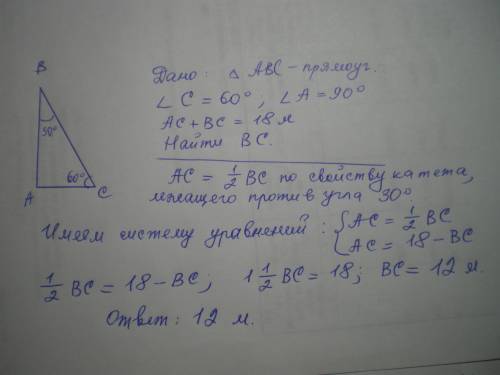 B
30°
60°
A
C
Дано: △ ABC - прямоуг.
∠ C = 60°, ∠ A = 90°
AC + BC = 18 м
Найти BC.
AC = 1/2 BC по свойству катета,
лежащего против угла 30°
Имеем систему уравнений: { AC = 1/2 BC
AC = 18 - BC
1/2 BC = 18 - BC; 1 1/2 BC = 18; BC = 12 м.
Ответ: 12 м.